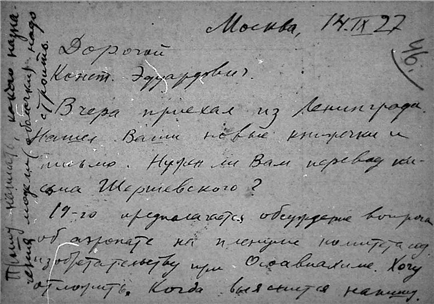 Москва, 14.IX 27
46.
Дорогой
Конст. Эдуардович.
Вчера приехал из Ленинграда.
Нашел Ваши новые книжечки и
письмо. Нужен ли Вам перевод пи-
сьма Шершевского?
19-го предполагается обсуждение вопроса
об аэропете на пленуме комитета по
изобретательству при Осоавиахиме. Хочу
отложить. Когда выяснится напишу.
Прошу написать какого назна-
чения можем
надо
строить.